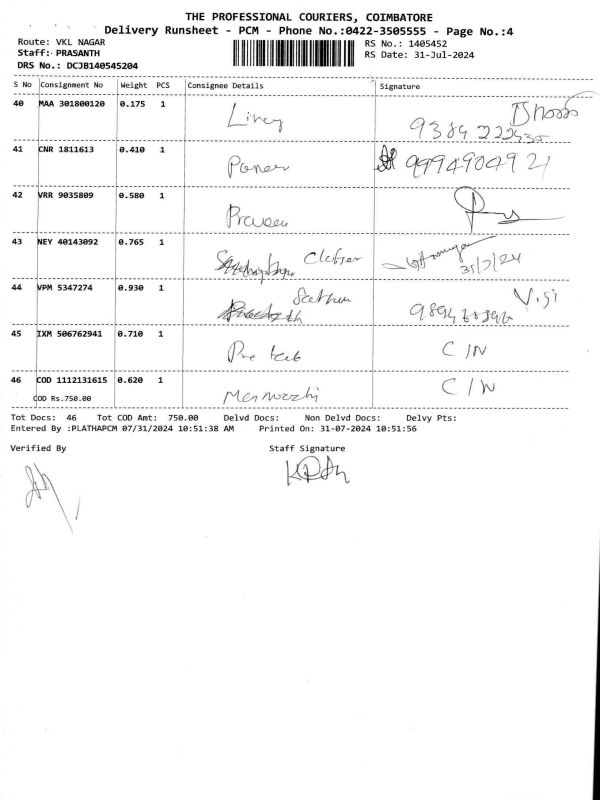 THE PROFESSIONAL COURIERS, COIMBATORE
Delivery Runsheet - PCM - Phone No.:0422-3505555 - Page No.:4
Route: VKL NAGAR
Staff: PRASANTH
DRS No.: DCJB140545204
RS No.: 1405452
RS Date: 31-Jul-2024
S No Consignment No Weight PCS Consignee Details Signature
40 MAA 301800120 0.175 1
41 CNR 1811613 0.410 1
42 VRR 9035809 0.580 1 Praveen
43 NEY 40143092 0.765 1
31/7/24
44 VPM 5347274 0.930 1 Viji
45 IXM 506762941 0.710 1 C/N
46 COD 1112131615 0.620 1 C/N
COD Rs.750.00
Tot Docs: 46 Tot COD Amt: 750.00 Delvd Docs: Non Delvd Docs: Delvy Pts:
Entered By :PLATHAPCM 07/31/2024 10:51:38 AM Printed On: 31-07-2024 10:51:56
Verified By Staff Signature